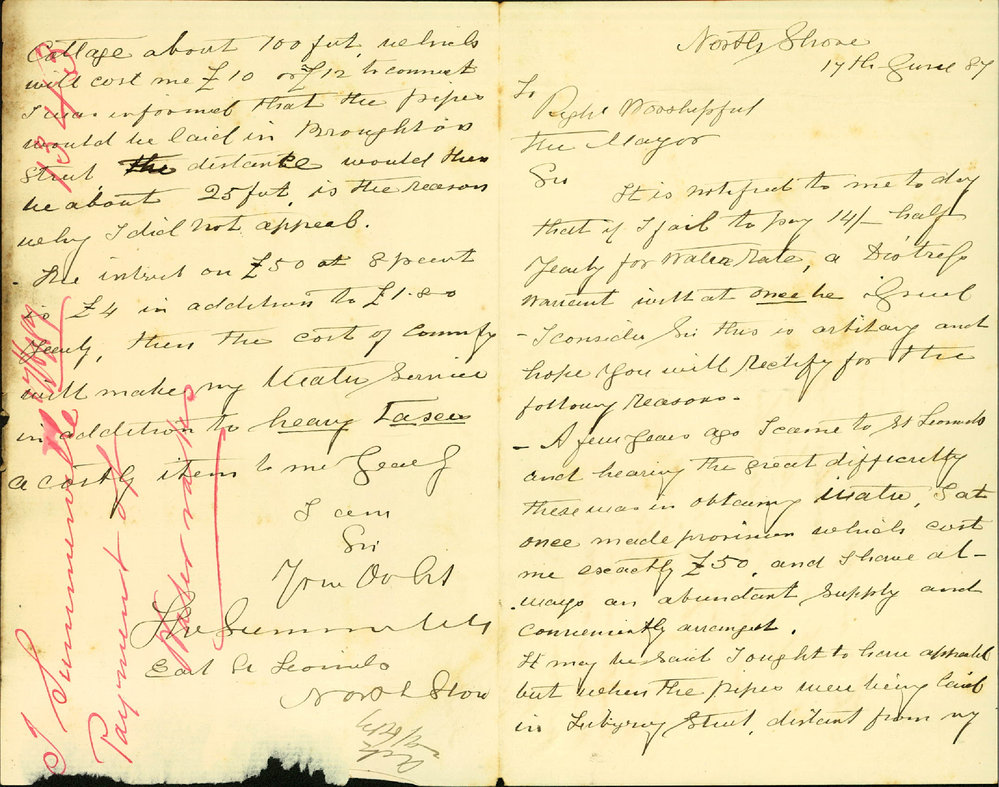 North Shore
17th June 87
To
Right Worshipful
the Mayor
Sir
It is notified to me to day
that if I fail to pay 14/- half
Yearly for Water Rate, a Distress
Warrant will at once be issued
- I consider Sir this is arbitary and
hope you will rectify for the
following reasons -
- A few years ago I came to St Leonards
and hearing the great difficulty
there was in obtaining Water, I at
once made provision which cost
me exactly £50, and I have al-
ways an abundant supply and
conveniently arranged.
It may be said I ought to have appealed
but when the pipes were being laid
in Street, distant from my
Cottage about 700 feet, which
will cost me £10 or £12 to connect
I was informed that the pipes
would be laid in Broughton
Street the distance would then
be about 25 feet, is the reason
why I did not appeal.
The interest on £50 at 8 pcent
is £4 in addition to £1.8.0
Yearly, then the cost of
will make my Water Service
in addition to heavy Taxes
a costly item to me Yearly
I am
Sir
Your Obdt
Summerville
East St Leonards
North Shore
1343
J Summerville
Payment of
Water rates